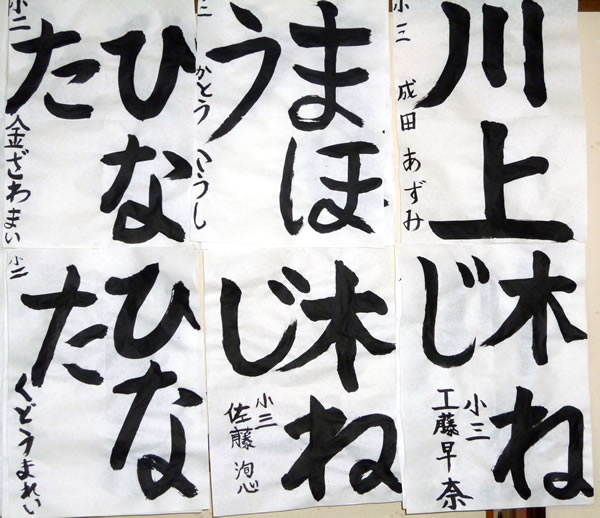 川上
小三 成田 あずみ
まほ
う
三 かとう こうし
ひな
た
小二 金ざわまい
木ね
じ
小三
工藤早奈
木ね
じ
小三
佐藤
ひな
た
小二 くどうまれい